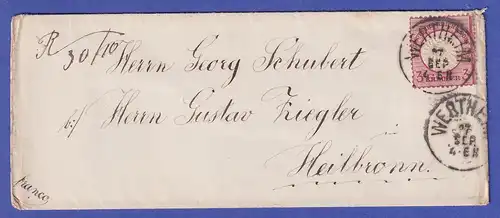 R 30/10
Herrn Georg Schubert
b/ Herrn Gustav Ziegler
Heilbronn.
franco
WERTHEIM
27
SEP.
4-5 N
3 3
WERTHEIM
27
SEP.
4-5 N